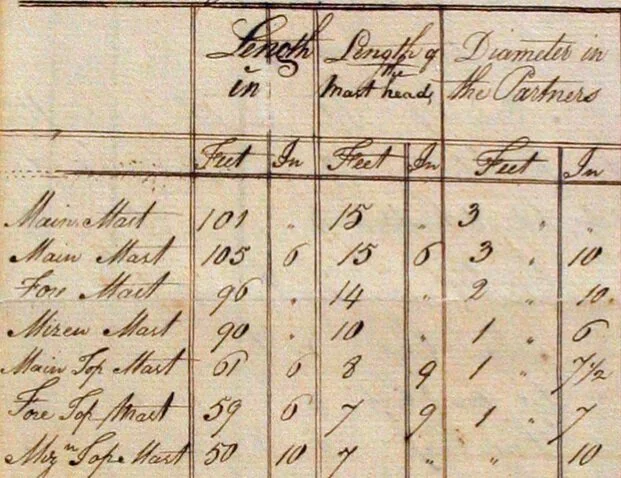 Length in | Length of the Mast heads | Diameter in the Partners
Feet | In | Feet | In | Feet | In
Main Mast | 101 | " | 15 | " | 3 " | "
Main Mast | 105 | 6 | 15 | 6 | 3 " | 10
Fore Mast | 96 | " | 14 | " | 2 " | 10
Mizen Mast | 90 | " | 10 | " | 1 " | 6
Main Top Mast | 61 | 6 | 8 | 9 | 1 " | 7½
Fore Top Mast | 59 | 6 | 7 | 9 | 1 " | 7
Mizn Top Mast | 50 | 10 | 7 | " | " | 10